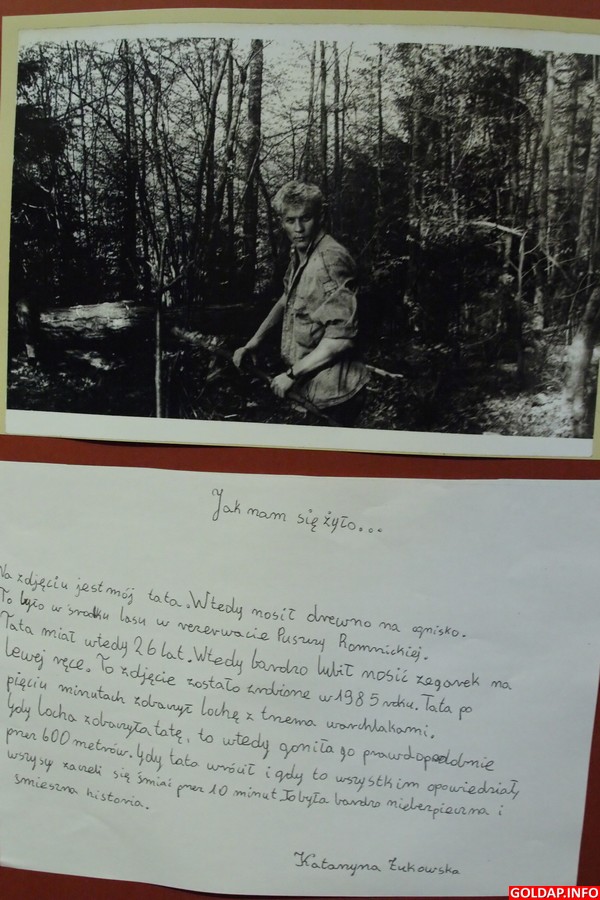 Jak nam się żyło...
Na zdjęciu jest mój tata. Wtedy nosił drewno na ognisko.
To było w środku lasu w rezerwacie Puszczy Romnickiej.
Tata miał wtedy 26 lat. Wtedy bardzo lubił nosić zegarek na
lewej ręce. To zdjęcie zostało zrobione w 1985 roku. Tata po
pięciu minutach zobaczył lochę z trzema warchlakami.
Gdy locha zobaczyła tatę, to wtedy goniła go prawdopodobnie
przez 600 metrów. Gdy tata wrócił i gdy to wszystkim opowiedział,
wszyscy zaczeli się śmiać przez 10 minut. To była bardzo niebezpieczna i
śmieszna historia.
Katarzyna Żukowska
GOLDAP.INFO